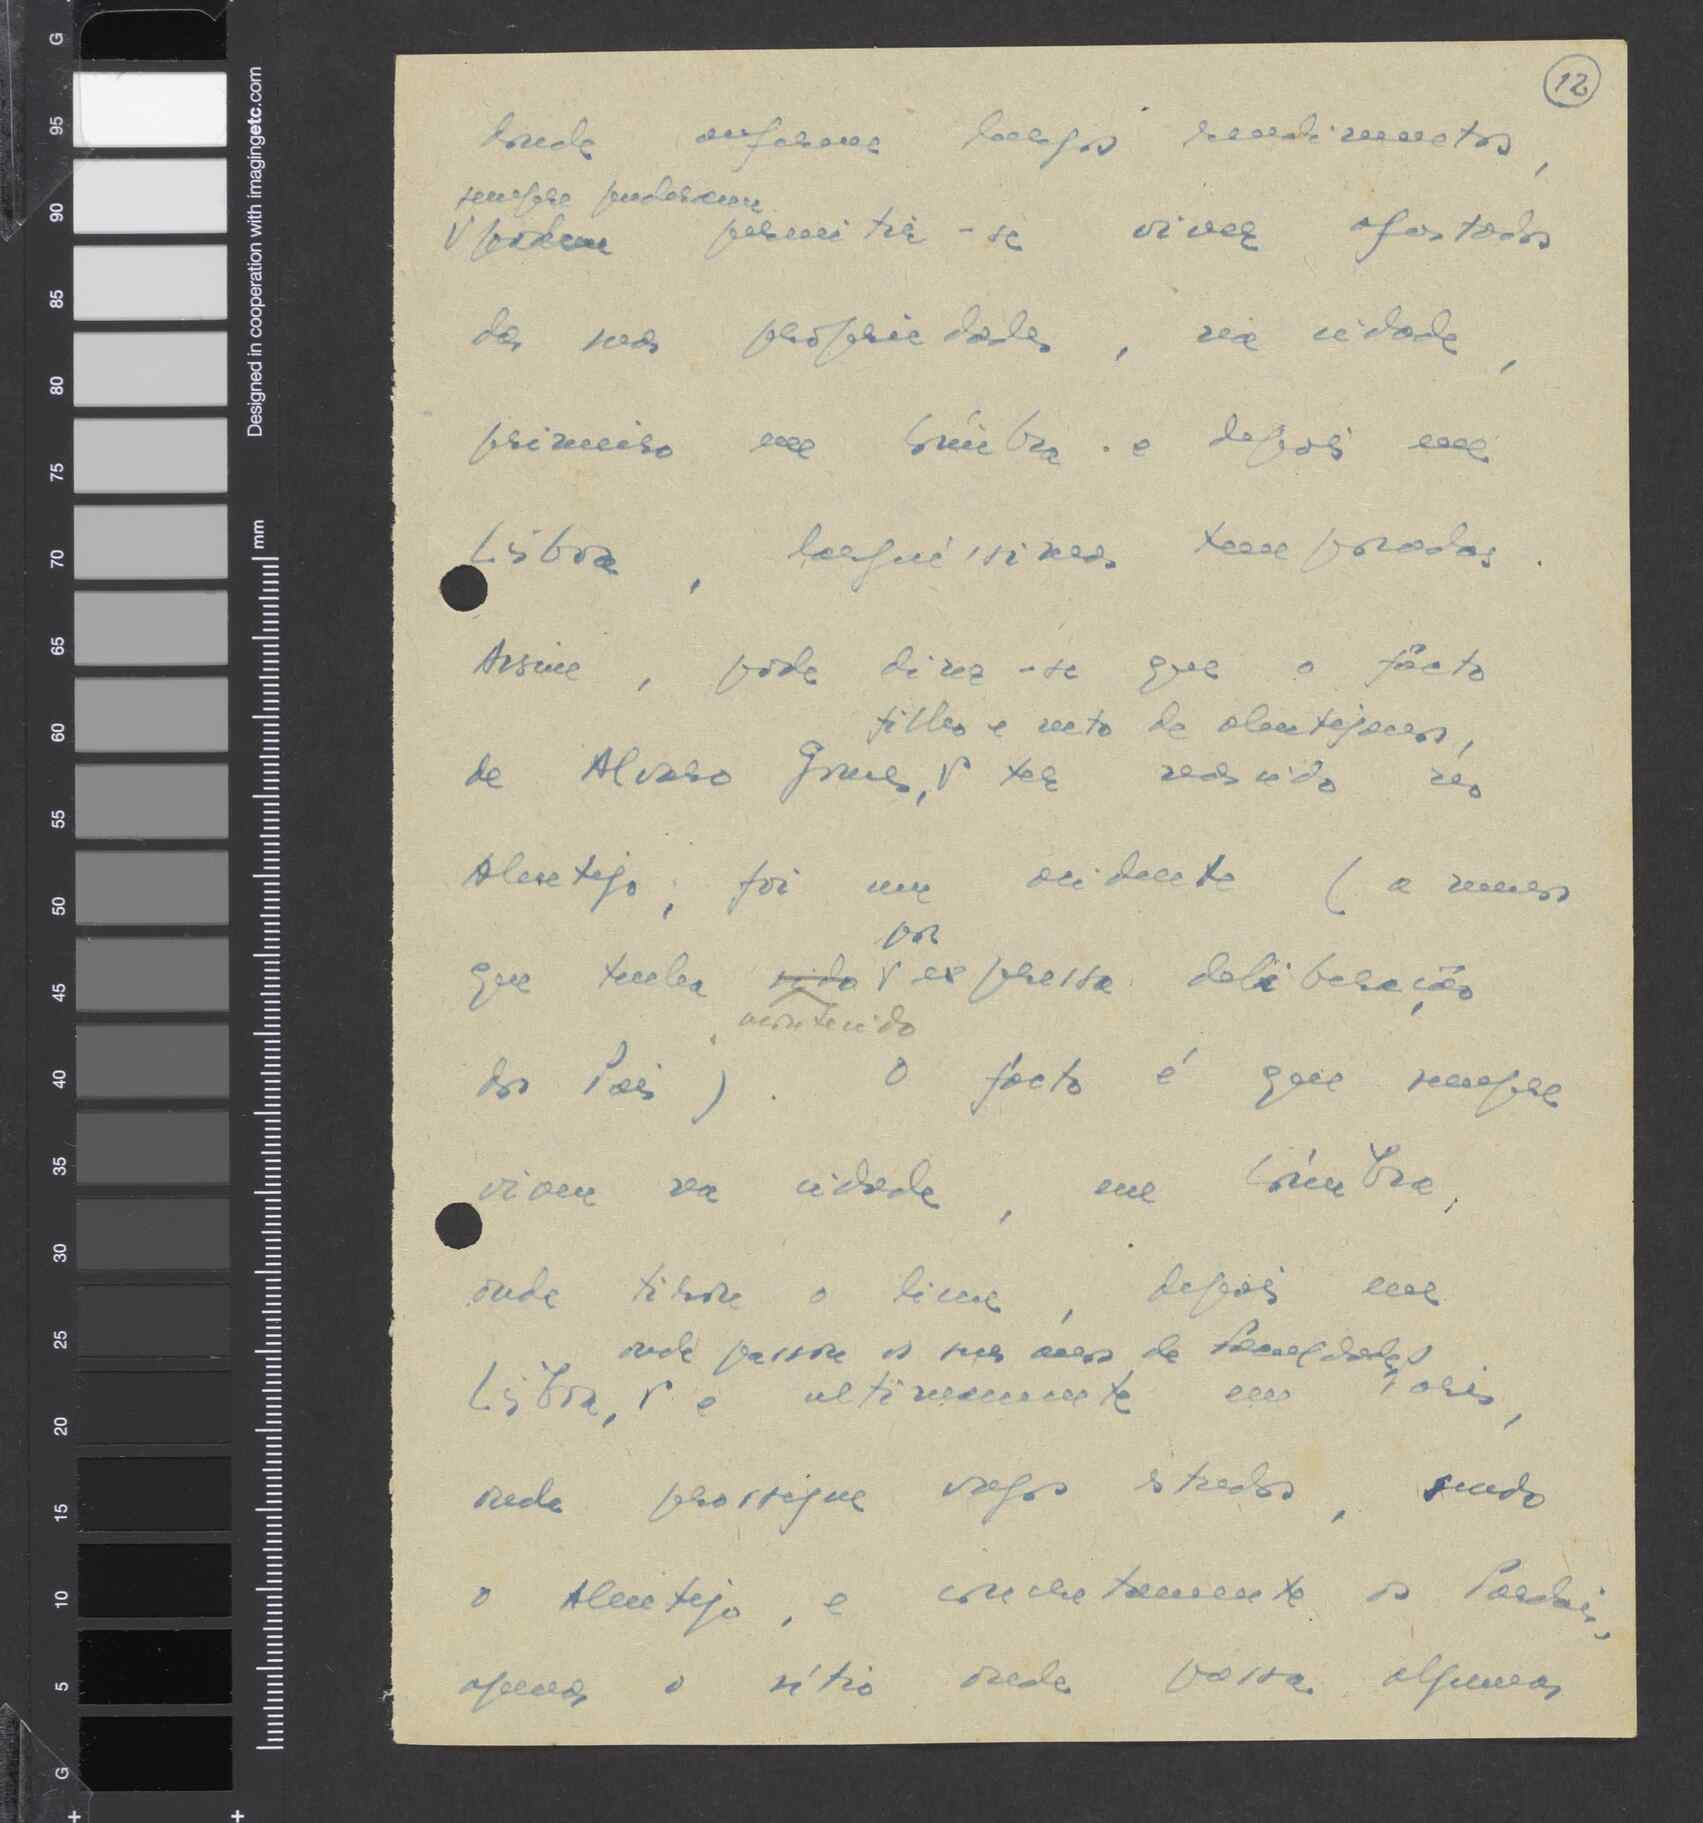 12
donde auferem largos rendimentos,
sempre puderam
podem permitir-se viver afastados
das suas propriedades, na cidade,
primeiro em Coimbra e depois em
Lisboa, larguíssimas temporadas.
Assim, pode dizer-se que o facto
filho e neto de alentejanos,
de Alvaro Gomes, ter nascido no
Alentejo, foi um acidente (a menos
por
que tenha sido expressa deliberação
acontecido
dos Pais). O facto é que sempre
viveu na cidade, em Coimbra,
onde tirou o liceu, depois em
onde passou os seus anos de
Lisboa, e ultimamente em Paris,
onde prossegue vagos estudos, sendo
o Alentejo, e concretamente os Pardais,
apenas o sítio onde passa algumas
Designed in cooperation with imagingetc.com
mm
G
95
90
85
80
75
70
65
60
55
50
45
40
35
30
25
20
15
10
5
G